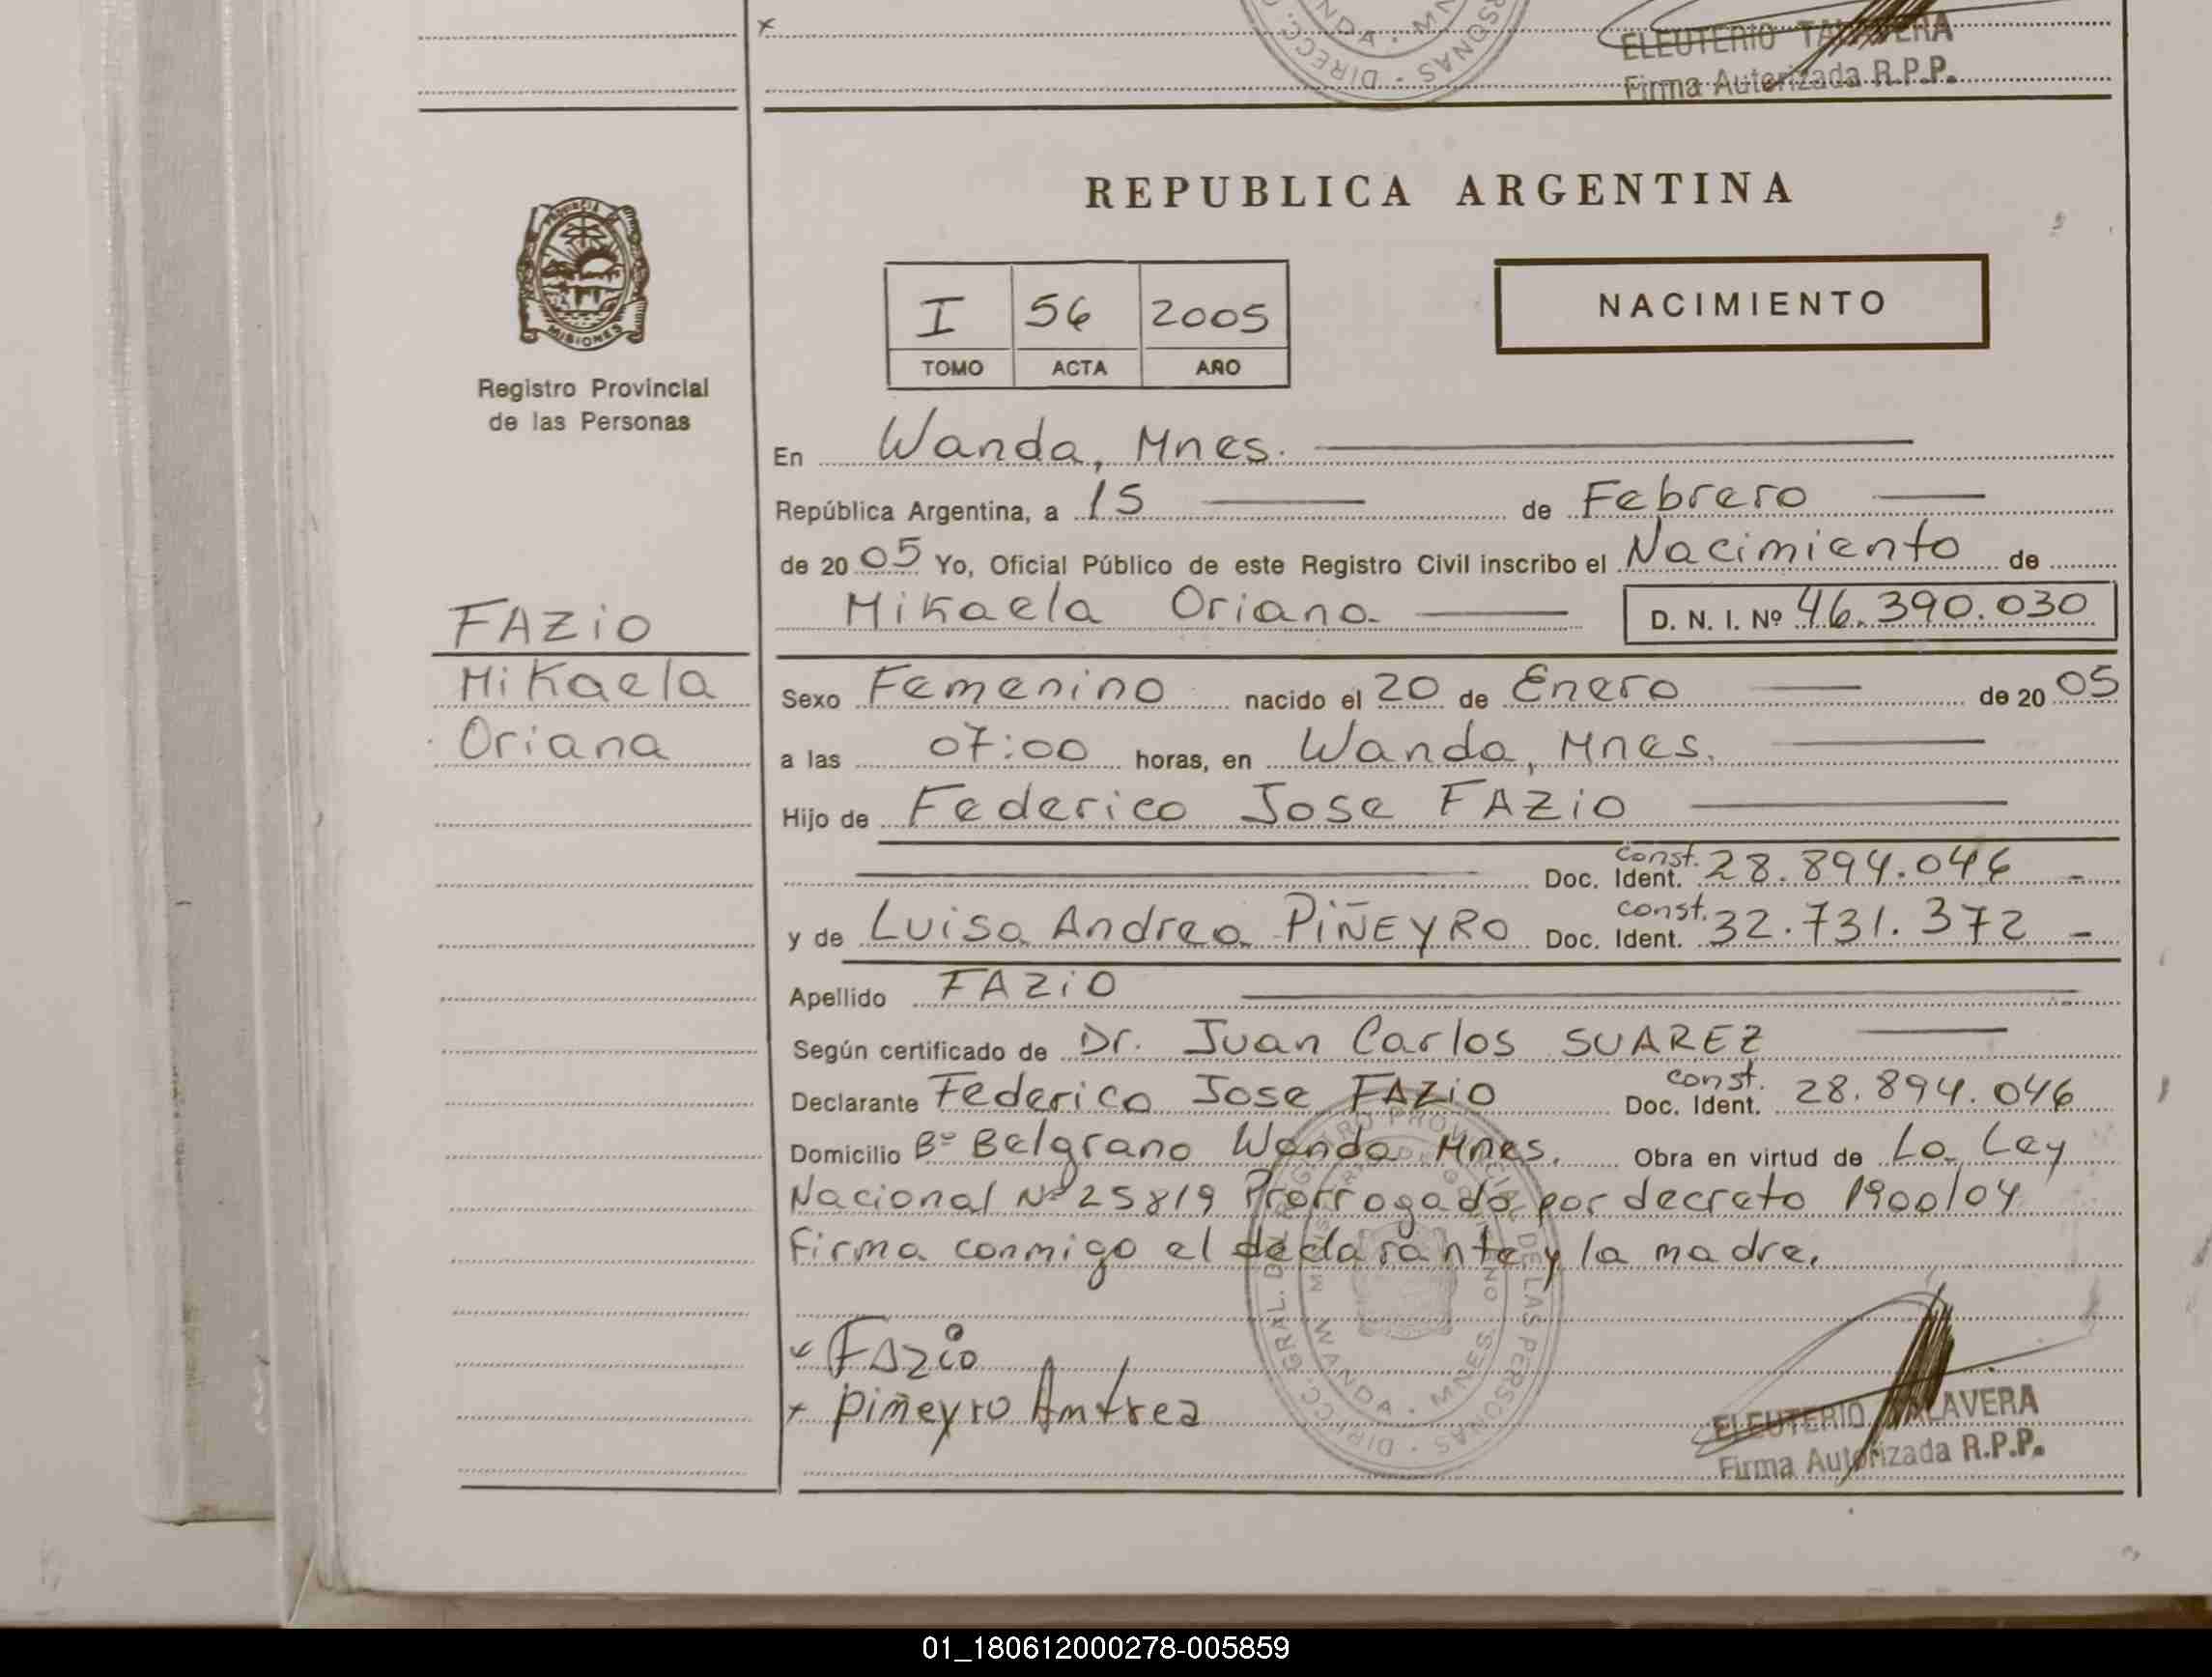 ELEUTERIO TALAVERA
Firma Autorizada R.P.P.
DIRECC.
WANDA - MNES
PERSONAS
REPUBLICA ARGENTINA
PROVINCIA DE
MISIONES
Registro Provincial
de las Personas
I 56 2005
TOMO ACTA AÑO
NACIMIENTO
En Wanda, Mnes.
República Argentina, a 15 de Febrero
de 2005 Yo, Oficial Público de este Registro Civil inscribo el Nacimiento de
Mikaela Oriana D. N. I. Nº 46.390.030
FAZiO
Mikaela
Oriana
Sexo Femenino nacido el 20 de Enero de 2005
a las 07:00 horas, en Wanda, Mnes.
Hijo de Federico Jose FAZiO
Doc. Ident. const. 28.894.046
y de Luisa Andrea PiÑEYRO Doc. Ident. const. 32.731.372
Apellido FAZiO
Según certificado de Dr. Juan Carlos SUAREZ
Declarante Federico Jose FAZiO Doc. Ident. const. 28.894.046
Domicilio Bº Belgrano Wanda Mnes. Obra en virtud de La Ley
Nacional Nº 25819 Prorrogada por decreto 1900/04
Firma conmigo el declarante y la madre.
x Fazio
x piñeyro Amtrea
DIRECC. GRAL. DEL REGISTRO PROVINCIAL DE LAS PERSONAS
MINISTERIO DE GOBIERNO
WANDA - MNES
ELEUTERIO TALAVERA
Firma Autorizada R.P.P.
01_180612000278-005859